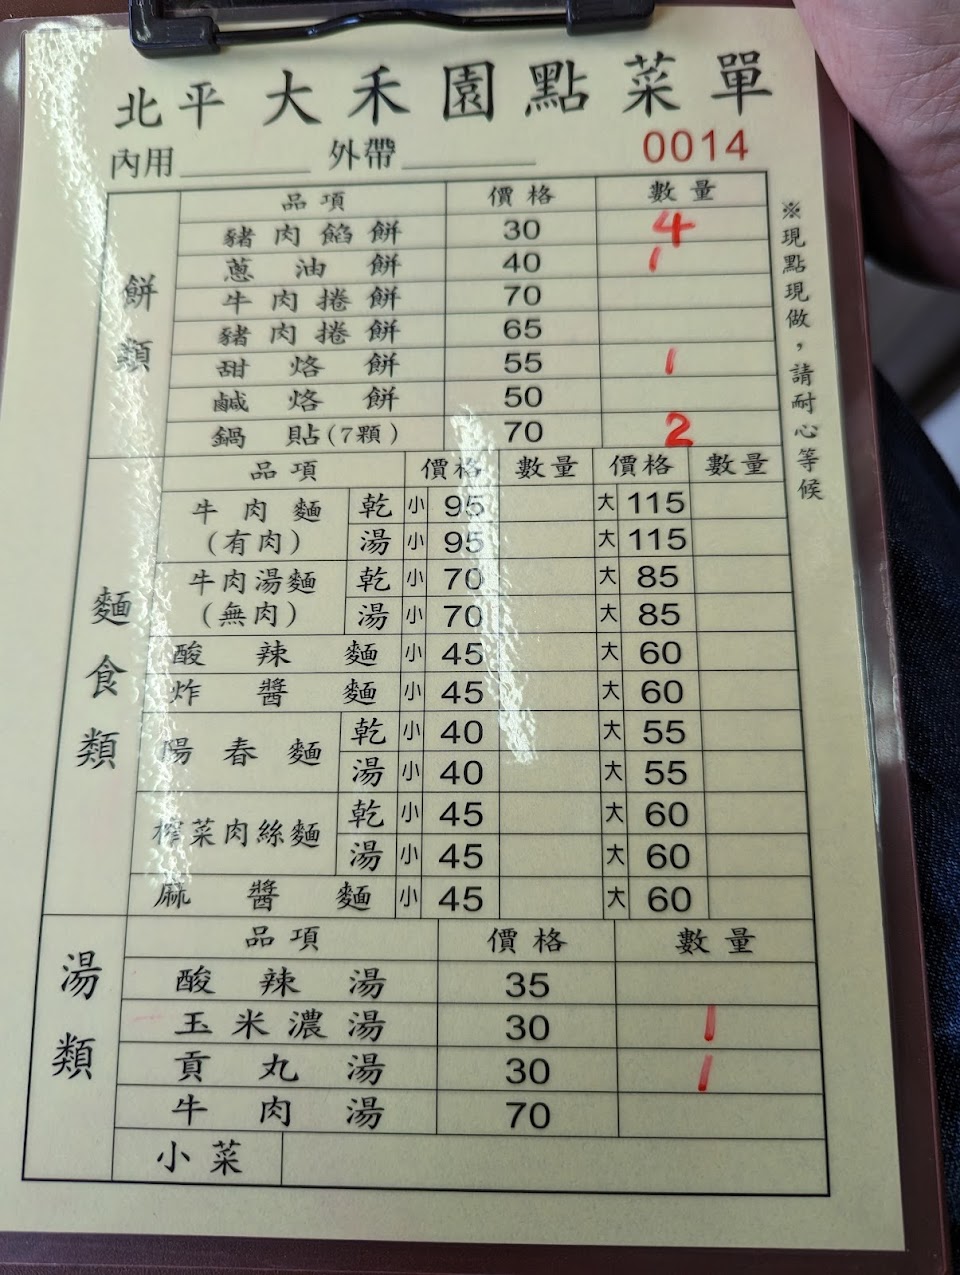 北平大禾園點菜單
內用 外帶 0014
餅類
品項 價格 數量
豬肉餡餅 30 4
蔥油餅 40 1
牛肉捲餅 70
豬肉捲餅 65
甜烙餅 55 1
鹹烙餅 50
鍋貼(7顆) 70 2
※現點現做，請耐心等候
麵食類
品項 價格 數量 價格 數量
牛肉麵(有肉) 乾 小 95 大 115
湯 小 95 大 115
牛肉湯麵(無肉) 乾 小 70 大 85
湯 小 70 大 85
酸辣麵 小 45 大 60
炸醬麵 小 45 大 60
陽春麵 乾 小 40 大 55
湯 小 40 大 55
榨菜肉絲麵 乾 小 45 大 60
湯 小 45 大 60
麻醬麵 小 45 大 60
湯類
品項 價格 數量
酸辣湯 35
玉米濃湯 30 1
貢丸湯 30 1
牛肉湯 70
小菜